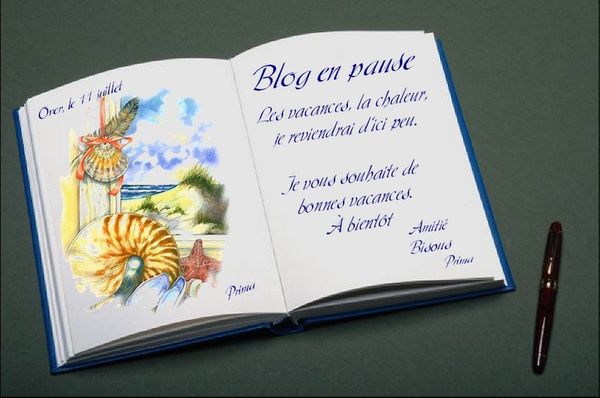 Over, le 11 juillet
Prima
Blog en pause
Les vacances, la chaleur,
je reviendrai d'ici peu.
Je vous souhaite de
bonnes vacances.
À bientôt
Amitié
Bisous
Prima